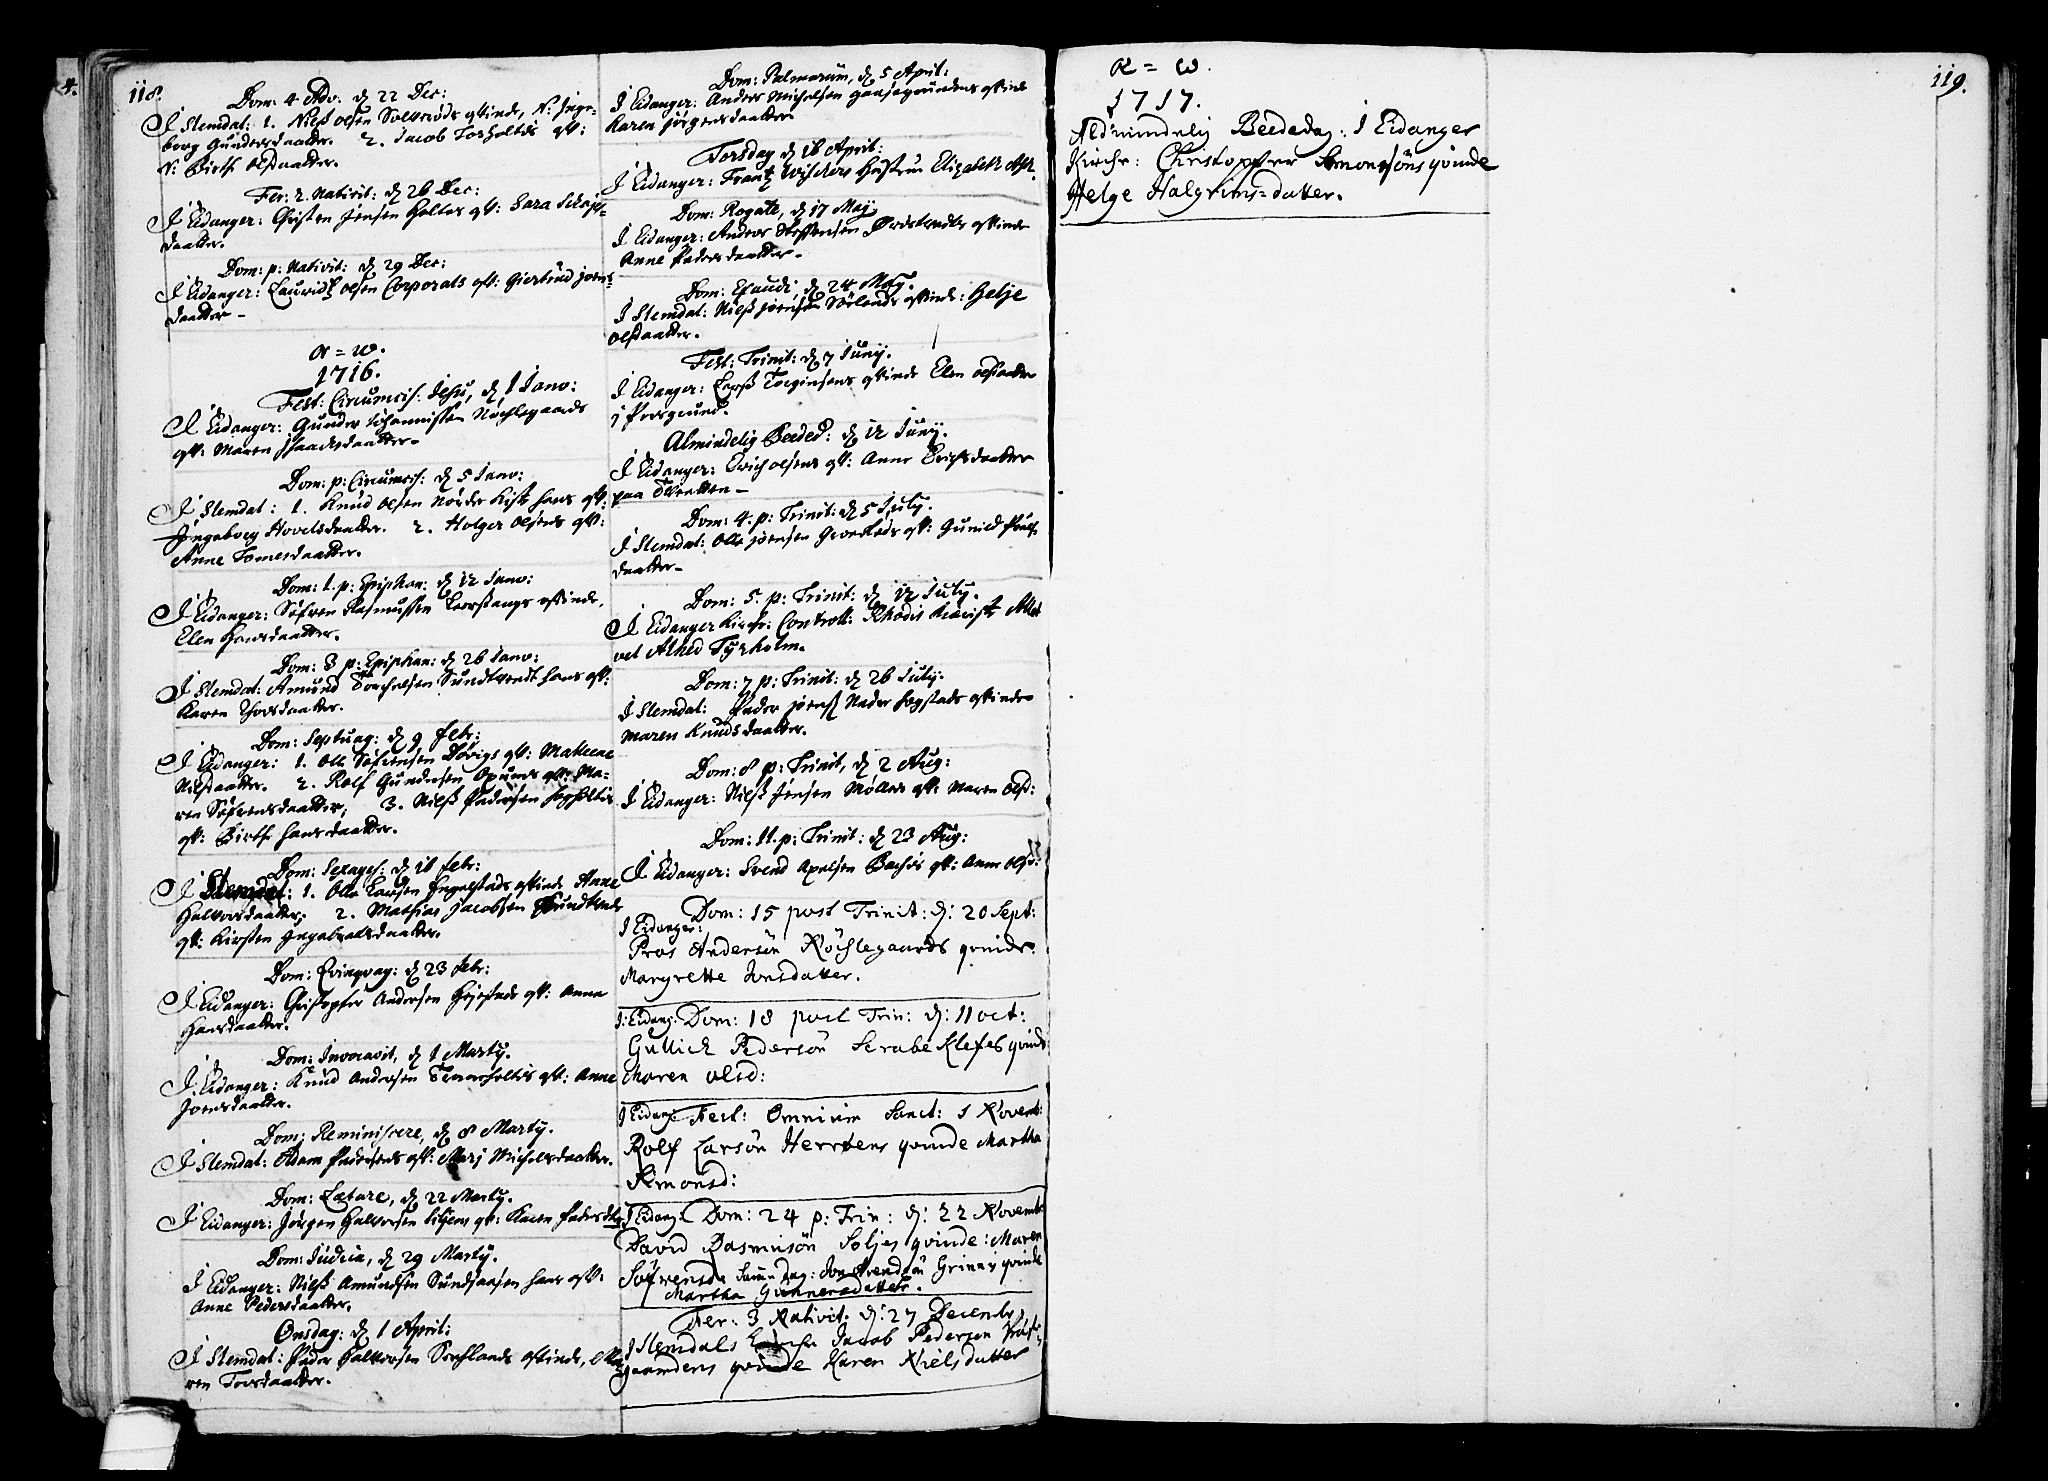 118.
Dom: 4 Adv: d 22 Dec:
J Slemdal: 1. Nilß Olsen Solverøds qvinde, N: Inge-
borg Gundersdaatter. 2. Jacob Torholtes qv:
N: Birthe Olsdaatter.
Fer: 2. Nativit: d 26 Dec:
J Eidanger: Christen Jensen Holtes qv: Sara
daatter.
Dom: p: Nativit: d 29 Dec:
J Eidanger: Lauridtz Olsen Corporals qv: Giertrud Joens-
daatter -
α = ω.
1716.
Fest: Circumcis: Jesu, d 1 Janv:
J Eidanger: Gunder Johannissen Nøchlegaards
qv: Maren Joachsdaatter -
Dom: p: Circumcis: d 5 Janv:
J Slemdal: 1. Knud Olsen Nørder hans qv:
Ingeborg Hovelsdaatter. 2. Holger Olsens qv:
Anne Tomesdaatter.
Dom: 1. p: Epiphan: d 12 Janv:
J Eidanger: Søfren Rasmussen qvinde.
Elen Hansdaatter.
Dom: 3 p: Epiphan: d 26 Janv:
J Slemdal: Amund Torchelsen Sundtvedt hans qv:
Karen Thorsdaatter.
Dom: Septuag: d 9 Febr:
J Eidanger: 1. Olle Søfrensen Døvigs qv: Malleene
Nilsdaatter. 2. Rolf Gundersen Opunds qv: Ma-
ren Søfrensdaatter, 3. Nilß Pedersen Hegholtes
qv: Birthe Hansdaatter.
Dom: Sexages: d 16 Febr:
J Slemdal: 1. Olle Larsen Ingelstads qvinde Anne
Halvorsdaatter; 2. Mathias Jacobsen Sundtveds
qv: Kirsten Ingebretsdaatter.
Dom: Qvinqvag: d 23 Febr:
J Eidanger: Christopher Andersen Heistads qv: Anna
Hansdaatter.
Dom: Invocavit, d 1 Marty.
J Eidanger: Knud Andersen qv: Anne
Joensdaatter.
Dom: Reminiscere, d 8 Marty.
J Slemdal: Adam Pedersens qv: Marj Michelsdaatter.
Dom: Lætare, d 22 Marty.
J Eidanger: Jørgen Halvorsen Siljens qv: Karen Pedersdtr
Dom: Judica, d 29 Marty.
J Eidanger: Nilß Amundsen Sundsaasen hans qv:
Anne Pedersdaatter.
Onsdag: d 1 April:
J Slemdal: Peder Halvorsen qvinde, Ma-
ren Torsdaatter.
Dom: Palmarum, d 5 April:
J Eidanger: Anders Michelsen qvinde
Karen Jørgensdaatter
Torsdag d 16 April:
J Eidanger: Frantz Wilchens Hustrue Elizabeth
Dom: Rogate, d 17 Maj
J Eidanger: Anders Steffensen Ørstvedts qvinde
Anne Pedersdaatter -
Dom: Exaudi, d 24 Maj.
J Slemdal: Nilß Joensen Sørlands qvinde: Helje
Olsdaatter.
Fest: Trinit: d 7 Juny.
J Eidanger: Larß Torginsens qvinde Elen Olsdaatter
j Porsgrund.
Almindelig Beeded: d 12 Juny.
J Eidanger: Erich Olsens qv: Anne Erichsdaatter
paa Tveetten -
Dom: 4. p: Trinit: d 5 July.
J Slemdal: Olle Joensen qv: Gunild Pouls-
daatter -
Dom: 5. p: Trinit: d 12 July.
J Eidanger Kirche: Controll: Rhodis Kieriste
vel Alhed Tyrholm.
Dom: 7 p: Trinit: d 26 July.
J Slemdal: Peder Joensß Neder Hegstads qvinde
Maren Knudsdaatter.
Dom: 8 p: Trinit, d 2 Aug:
J Eidanger: Nilß Jensen Møllers qv: Maren Olsd:
Dom: 11. p: Trinit: d 23 Aug:
J Eidanger: Svend Axelsen qv: Anne Olsd:
Dom: 15 post Trinit: d: 20 Sept:
J Eidanger:
Pros Andersøn Nøchlegaards qvinde.
Margrette Jonsdatter.
J: Eidang: Dom: 18 post Trin: d: 11 oct:
Gullich Pedersøn Scrabe Klefes qvinde
Maren Olsd:
J Eidang: Fest: Omnium Sanct: 1 Novemb:
Rolf Larsøn Herrøens qvinde Martha
Simonsd:
J Eidang: Dom: 24 p: Trin: d: 22 Novemb:
David Rasmusøn Soljes qvinde: Maren
Søfrensd: Samme dag: Jon Arendsøn Grinis qvinde
Martha Gunnersdatter.
Fer: 3 Nativit: d: 27 Decembr
J Slemdals Kirche Jacob Pedersen
gaardens qvinde Karen Nielsdatter
119.
α = ω.
1717.
Aldmindelig Beededag: J Eidanger
Kirche: Christopher Simonsøns qvinde
Helge Halgrims=datter.